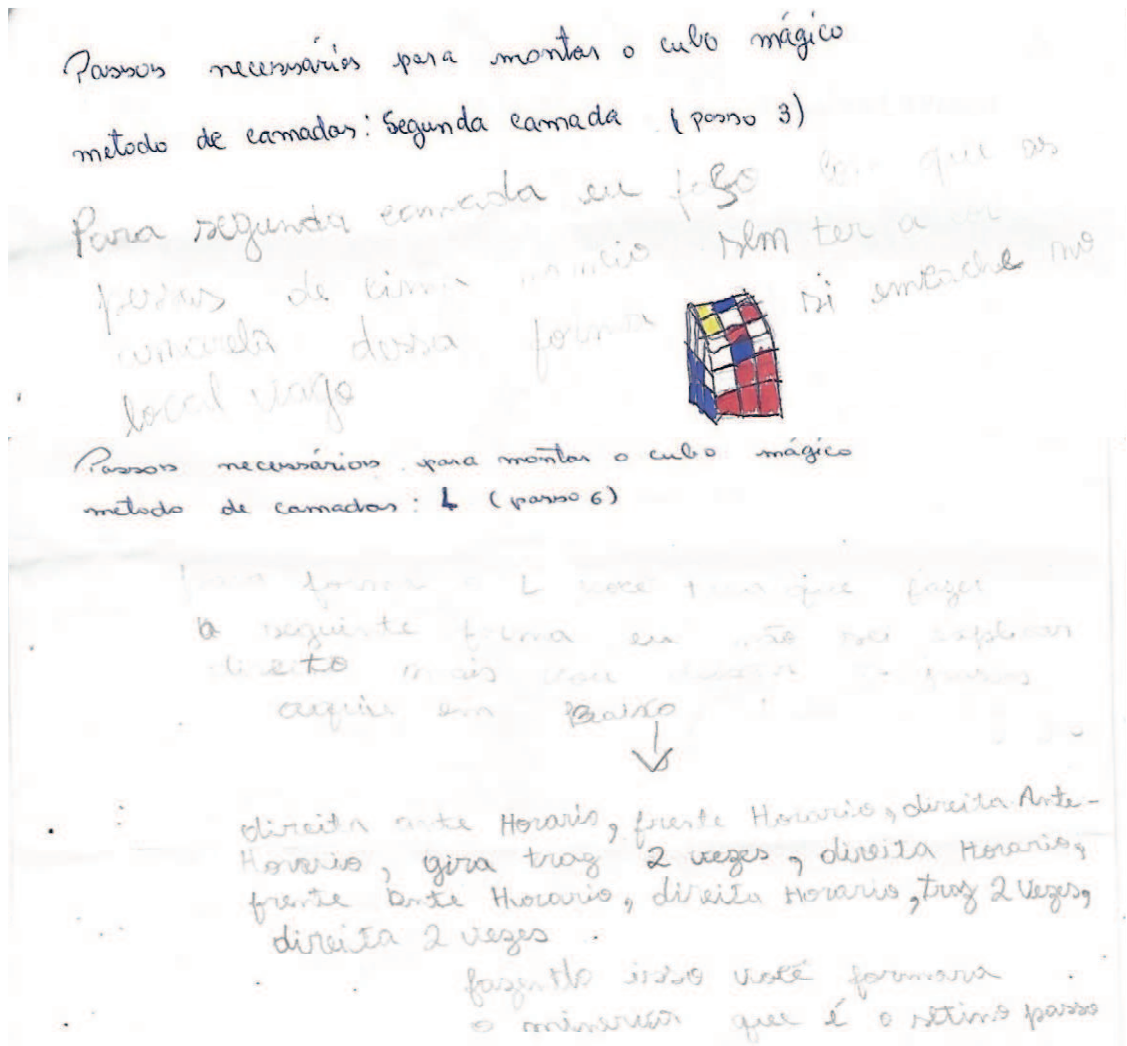 Passos necessários para montar o cubo mágico
metodo de camadas: Segunda camada (passo 3)
Para segunda camada eu faso que as
pesas de cima no meio sem ter a cor
amarela dessa forma si encache no
local vago
Passos necessários para montar o cubo mágico
metodo de camadas: L (passo 6)
para forma o L voce tera que fazer
a seguinte forma eu não sei explicar
direto mais vou deixar os passos
aqui em Baixo
direita ante Horario, frente Horario, direita Ante-
Horario, gira traz 2 vezes, direita Horario,
frente Ante Horario, direita Horario, traz 2 vezes,
direita 2 vezes.
fazendo isso você formara
o que é o setimo passo